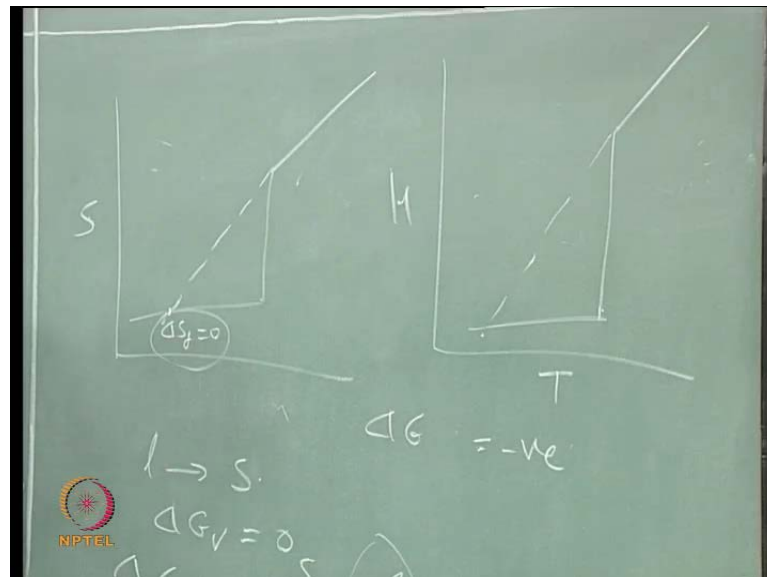 S
H
ΔSf=0
T
ΔG = -ve
l → S.
ΔGv = 0
NPTEL